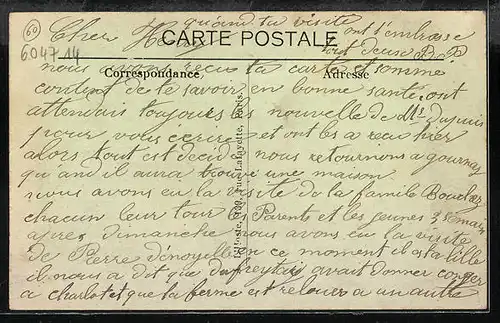 60
6047 14
quand tu visite
Cher Henri
ont t'embrasse
tout deuse P. P.
CARTE POSTALE
nous avons recu ta carte et somme
Correspondance
Adresse
content de te savoir en bonne sante ont
attendais toujours les nouvelle de Mr Dupuis
pour vous ecrire et ont les a recu hier
alors tout est decider nous retournons a gournay
quand il aura trouvé une maison.
nous avons eu la visite de la famile Boucher
chacun leur tour les Parents et les jeunes 3 semaine
apres dimanche nous avons eu la visite
de Pierre en ce moment il est a lille
il nous a dit que avait donner conger
a charlot et que la ferme est relouer a un autre
Rue Lafayette, Paris